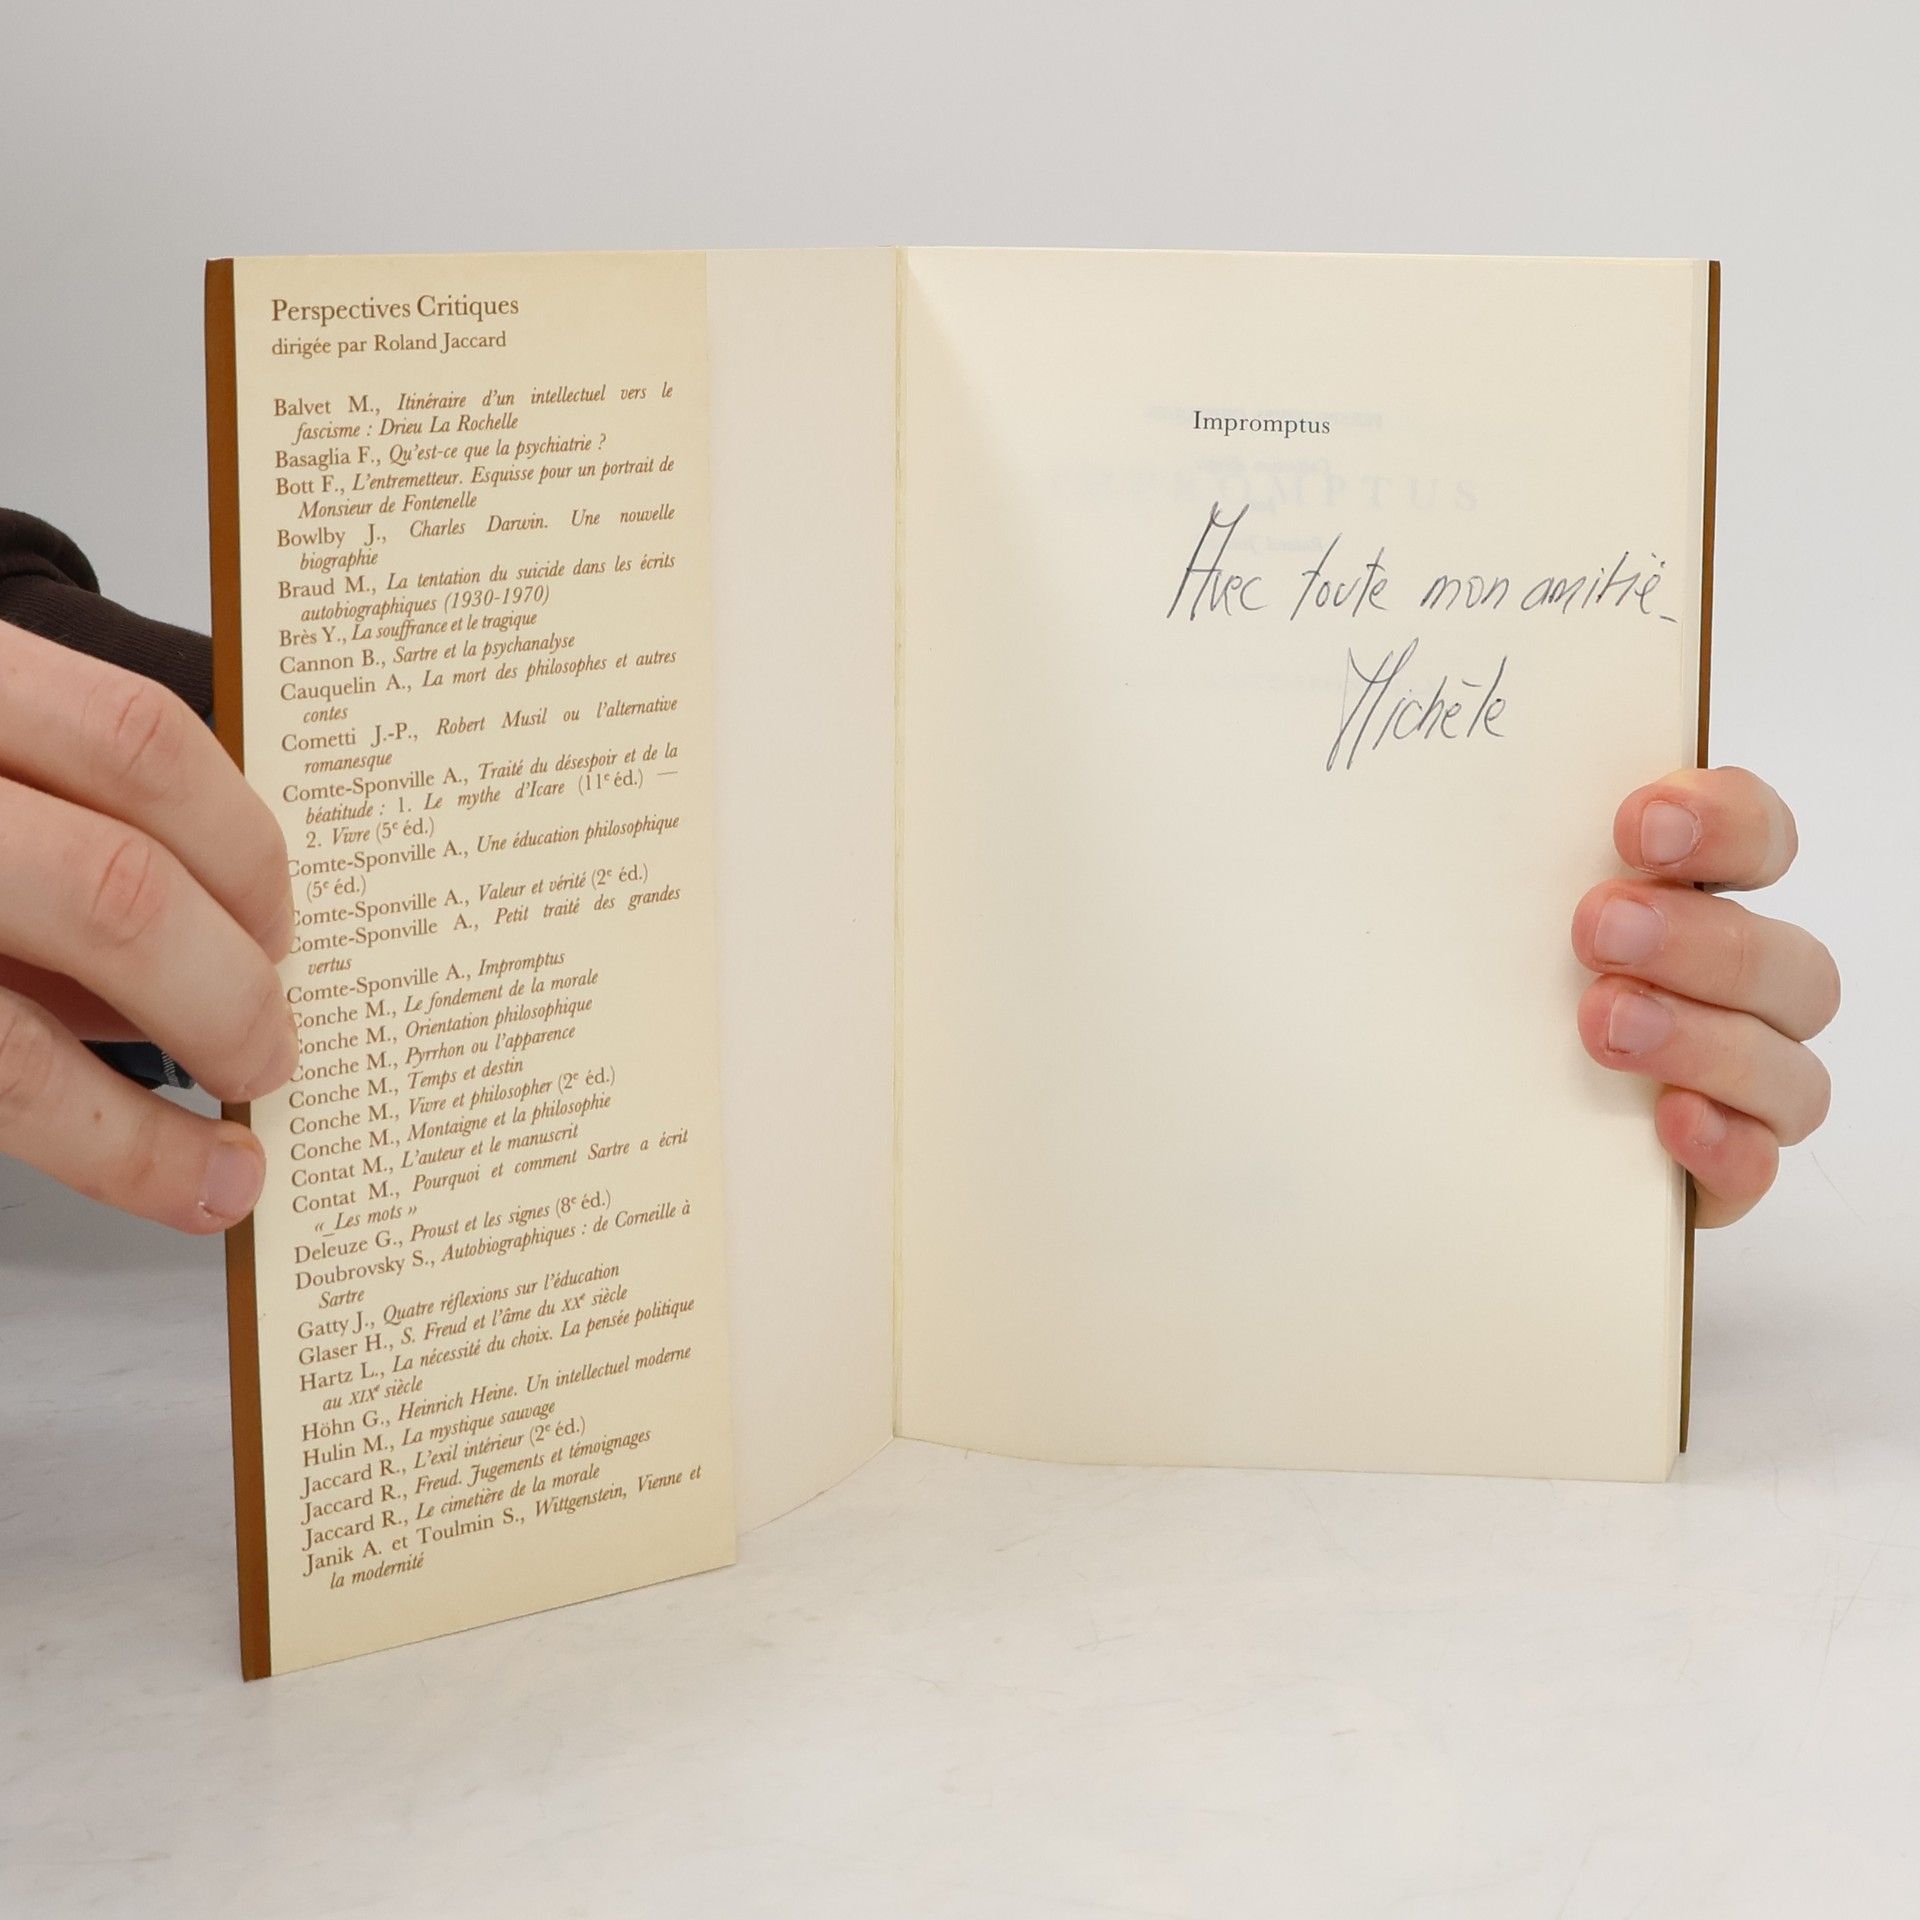 Perspectives Critiques
dirigée par Roland Jaccard
Balvet M., Itinéraire d'un intellectuel vers le
fascisme : Drieu La Rochelle
Basaglia F., Qu'est-ce que la psychiatrie ?
Bott F., L'entremetteur. Esquisse pour un portrait de
Monsieur de Fontenelle
Bowlby J., Charles Darwin. Une nouvelle
biographie
Braud M., La tentation du suicide dans les écrits
autobiographiques (1930-1970)
Brès Y., La souffrance et le tragique
Cannon B., Sartre et la psychanalyse
Cauquelin A., La mort des philosophes et autres
contes
Cometti J.-P., Robert Musil ou l'alternative
romanesque
Comte-Sponville A., Traité du désespoir et de la
béatitude : 1. Le mythe d'Icare (11e éd.) —
2. Vivre (5e éd.)
Comte-Sponville A., Une éducation philosophique
(5e éd.)
Comte-Sponville A., Valeur et vérité (2e éd.)
Comte-Sponville A., Petit traité des grandes
vertus
Comte-Sponville A., Impromptus
Conche M., Le fondement de la morale
Conche M., Orientation philosophique
Conche M., Pyrrhon ou l'apparence
Conche M., Temps et destin
Conche M., Vivre et philosopher (2e éd.)
Conche M., Montaigne et la philosophie
Contat M., L'auteur et le manuscrit
Contat M., Pourquoi et comment Sartre a écrit
« Les mots »
Deleuze G., Proust et les signes (8e éd.)
Doubrovsky S., Autobiographiques : de Corneille à
Sartre
Gatty J., Quatre réflexions sur l'éducation
Glaser H., S. Freud et l'âme du XXe siècle
Hartz L., La nécessité du choix. La pensée politique
au XIXe siècle
Höhn G., Heinrich Heine. Un intellectuel moderne
Hulin M., La mystique sauvage
Jaccard R., L'exil intérieur (2e éd.)
Jaccard R., Freud. Jugements et témoignages
Jaccard R., Le cimetière de la morale
Janik A. et Toulmin S., Wittgenstein, Vienne et
la modernité
Impromptus
Avec toute mon amitié_
Michèle